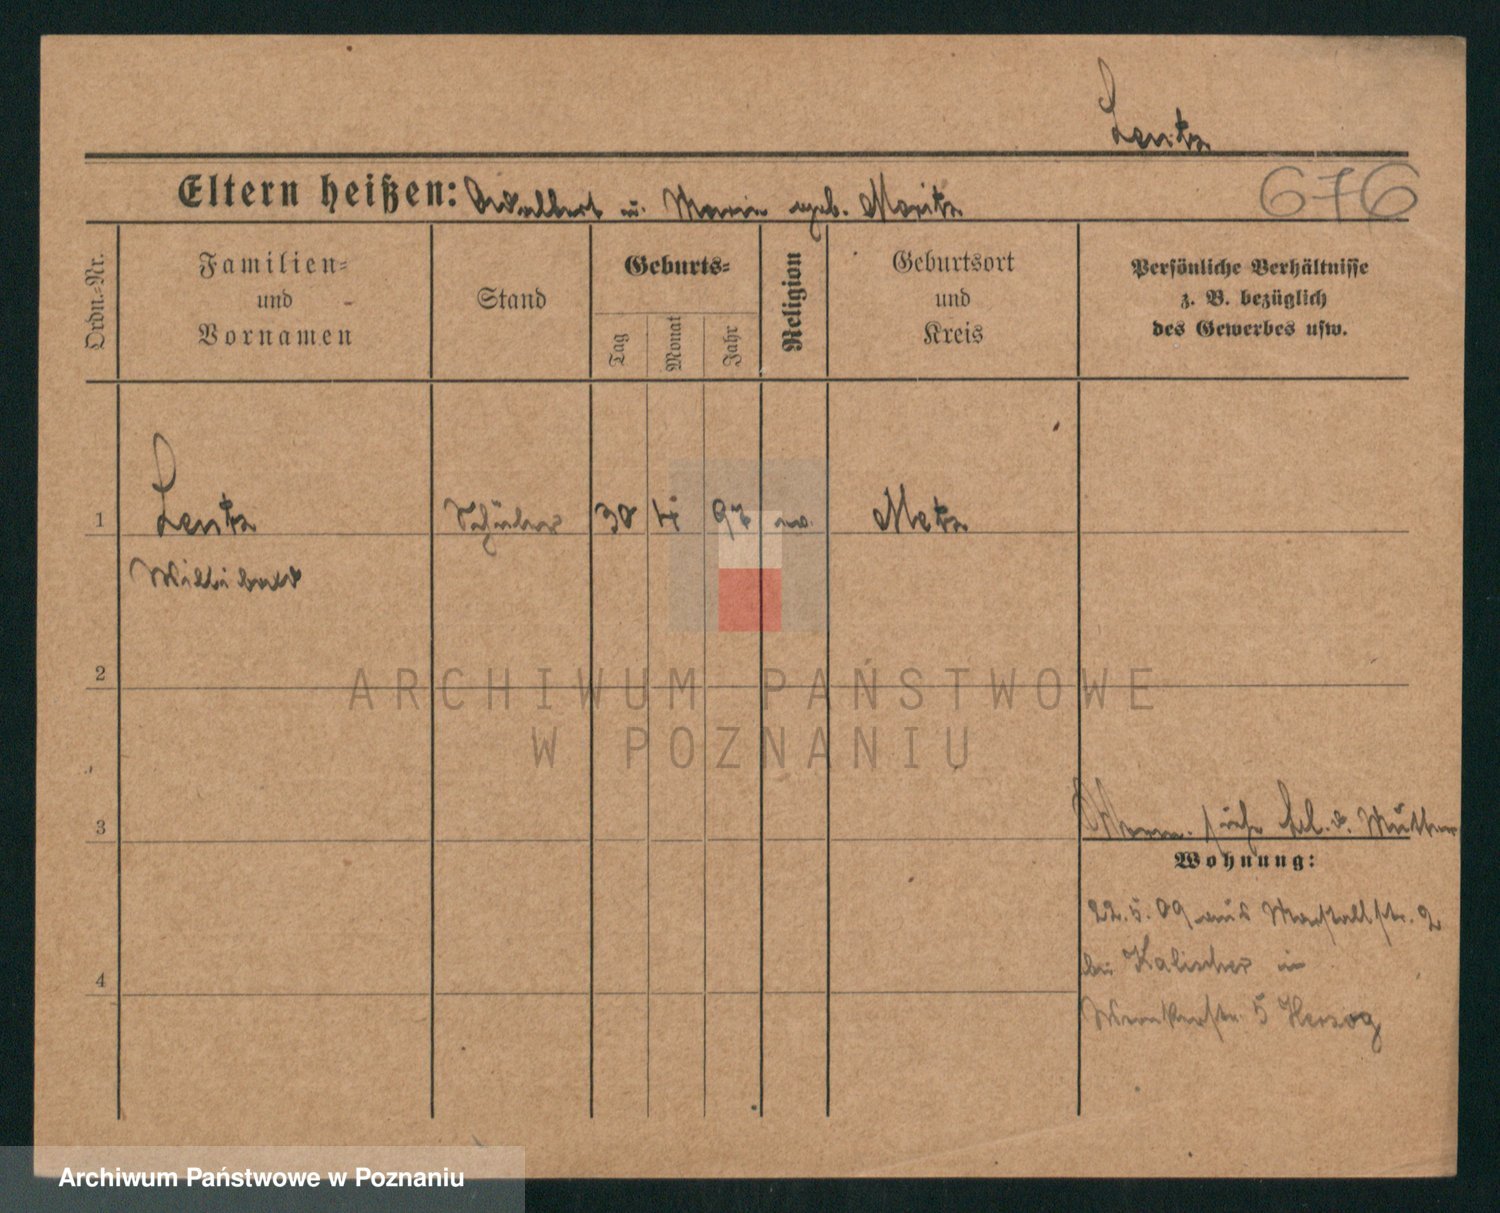 Lentz
Eltern heißen: Adalbert u. Marie geb. Moritz
676
Ordn.-Nr.
Familien-
und
Vornamen
Stand
Geburts-
Tag
Monat
Jahr
Religion
Geburtsort
und
Kreis
Persönliche Verhältnisse
z. B. bezüglich
des Gewerbes usw.
1
Lentz
Schüler
30
4
97
ev.
Metz
Willibald
2
ARCHIWUM PAŃSTWOWE
W POZNANIU
3
siehe bei d. Mutter
Wohnung:
22.5.09 aus Marstallstr. 2
bei Kalischer in
5 Herzog
4
Archiwum Państwowe w Poznaniu